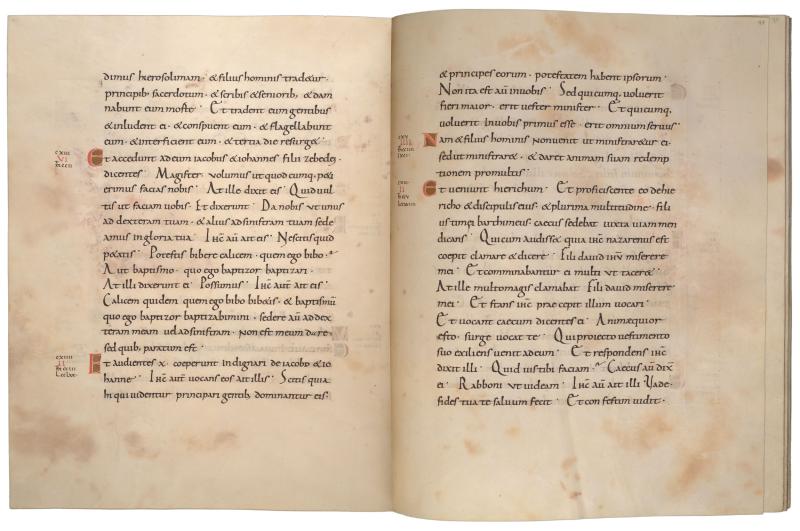 dimus hierosolimam · & filius hominis trad&ur ·
principib; sacerdotum · & scribis & seniorib; & dam
nabunt eum morte · Et tradent eum gentibus
& inludent ei · & conspuent eum · & flagellabunt
eum · & interficient eum · & tertia die resurg& ·
Et accedunt ad eum iacobus & iohannes filii zebedei ·
dicentes · Magister volumus ut quodcumq; pe&
erimus facias nobis · At ille dixit eis · Quid vul
tis ut faciam vobis · Et dixerunt · Da nobis ut unus
ad dexteram tuam · & alius ad sinistram tuam sede
amus in gloria tua · Ihc aū ait eis · Nescitis quid
p&atis · Potestis bibere calicem · quem ego bibo ·
Aut baptismo · quo ego baptizor baptizari ·
At illi dixerunt ei · Possumus · Ihc aut ait eis ·
Calicem quidem quem ego bibo bib&is · & baptismū
quo ego baptizor baptizabimini · sedere aū ad dex
teram meam vel ad sinistram · Non est meum dare ·
sed quib; paratum est ·
Et audientes x · coeperunt indignari de iacobo & io
hanne · Ihc aut vocans eos ait illis · Scitis quia
hi qui videntur principari gentib; dominantur eis ·
& principes eorum · potestatem habent ipsorum ·
Non ita est aū in vobis · Sed quicumq; voluerit
fieri maior · erit vester minister · Et quicumq;
voluerit in vobis primus esse · erit omnium servus
Nam & filius hominis non venit ut ministrar&ur ei ·
sed ut ministrar& · & dar& animam suam redemp
tionem pro multis ·
Et veniunt hierichum · Et proficiscente eo de hie
richo & discipulis eius · & plurima multitudine · fili
us timei bartimeus · caecus sedebat iuxta viam men
dicans · Qui cum audiss& quia ihc nazarenus est
coepit clamare & dicere · Fili david ihv miserere
mei · Et comminabantur ei multi ut tacer& ·
At ille multo magis clamabat · Fili david miserere
mei · Et stans ihc praecepit illum vocari ·
Et vocant caecum dicentes ei · Animaequior
esto · surge vocat te · Qui proiecto vestimento
suo exiliens venit ad eum · Et respondens ihc
dixit illi · Quid vis tibi faciam · Caecus aū dix
ei · Rabboni ut videam · Ihc aū ait illi · Vade ·
fides tua te salvum fecit · Et confestim vidit ·